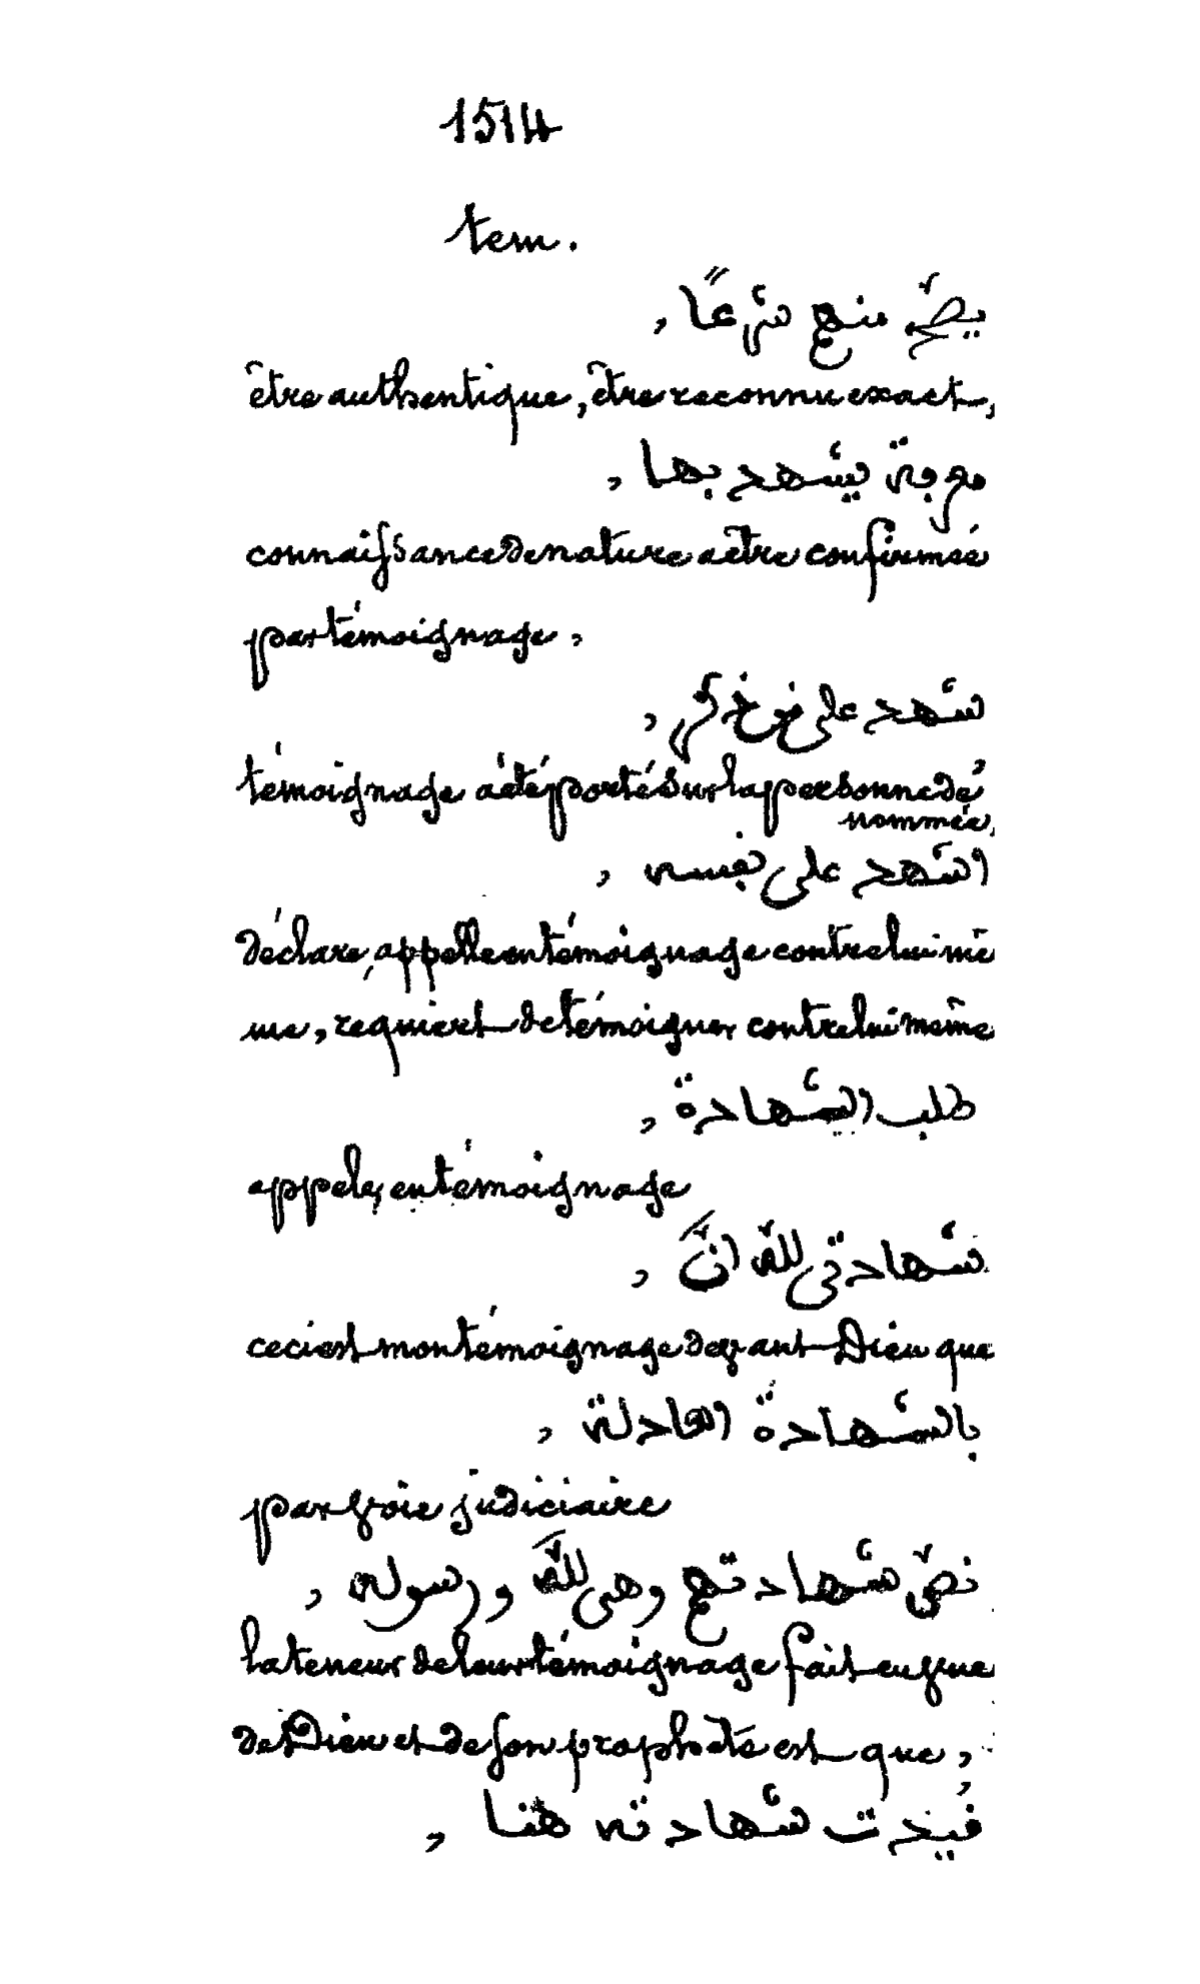 1514
tem.
يصحّ منهم شرعًا ,
être authentique, être reconnu exact,
معرفة يشهد بها ,
connaissance de nature a être confirmée
par témoignage ,
شهد على
témoignage a été porté sur la personne dé
nommée,
اشهد على نفسه ,
déclare, appelle en témoignage contre lui mê
me, requiert de témoigner contre lui même
طلب الشهادة ,
appelé, en témoignage
شهادتى للّه انَّ ,
ceci est mon témoignage devant Dieu que
بالشهادة العادلة ,
par voie judiciaire
نصّ شهادتهم وهى للّه ورسوله ,
la teneur de leur témoignage fait en vue
de Dieu et de son prophète est que,
قُيّدت شهادته هنا ,